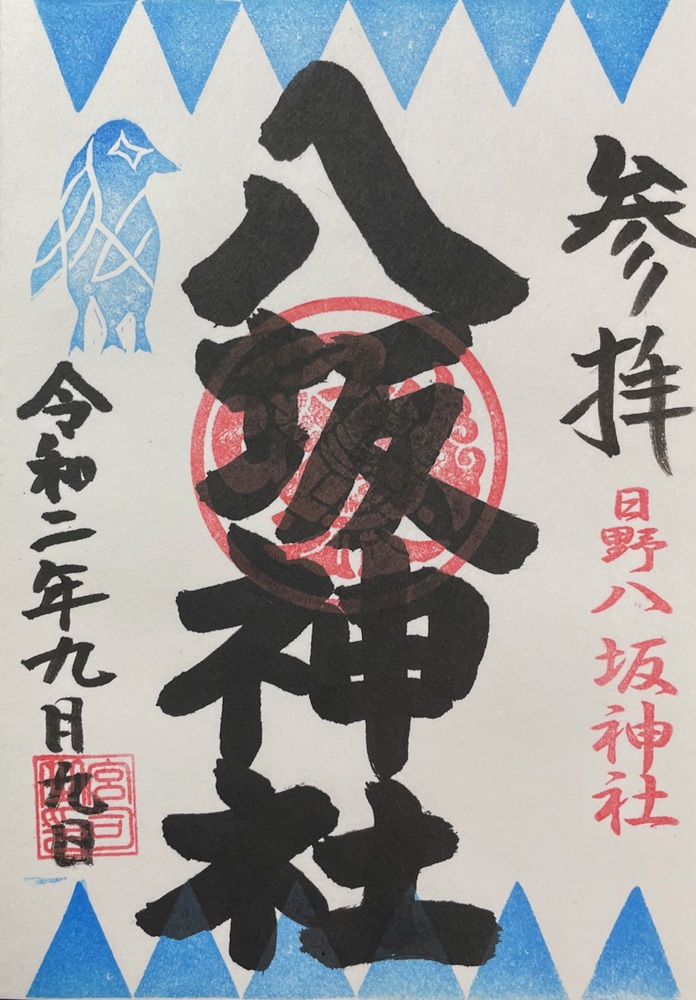 参拝
日野八坂神社
八坂神社
令和二年九月九日
宮司